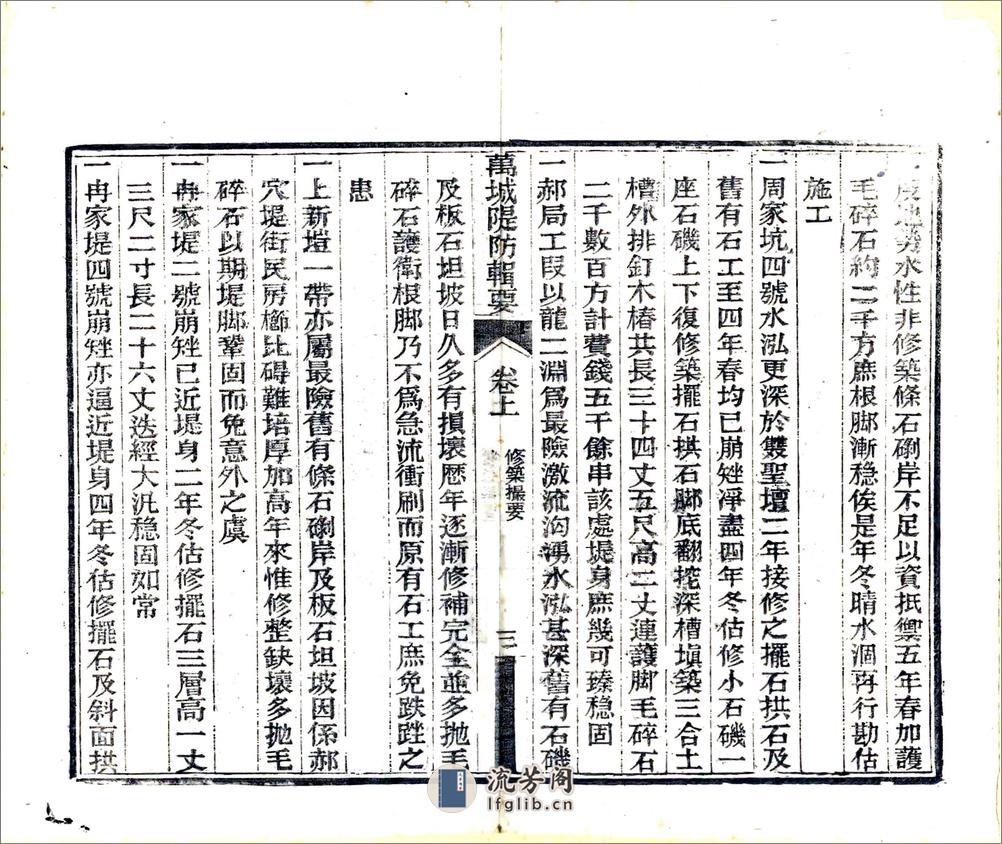 水性非修築條石磡岸不足以資抵禦五年春加護
毛碎石約二千方庶根脚漸穩俟是年冬晴水涸再行勘估
施工
一周家坑四號水泓更深於雙聖壇二年接修之擺石拱石及
舊有石工至四年春均已崩矬凈盡四年冬估修小石磯一
座石磯上下復修築擺石拱石脚底翻挖深槽塡築三合土
槽外排釘木樁共長三十四丈五尺高二丈連護脚毛碎石
二千數百方計費錢五千餘串該處堤身庶幾可臻穩固
一郝局工叚以龍二淵爲最險激流洶湧水泓甚深舊有石磯
萬城隄防輯要
卷上
修築撮要
三
及板石坦坡日久多有損壞歷年逐漸修補完全並多抛毛
碎石護衛根脚乃不爲急流衝刷而原有石工庶免跌跮之
患
一上新塏一帶亦屬最險舊有條石磡岸及板石坦坡因係郝
穴堤街民房櫛比碍難培厚加高年來惟修整缺壞多抛毛
碎石以期堤脚鞏固而免意外之虞
一冉家堤二號崩矬已近堤身二年冬估修擺石三層高一丈
三尺二寸長二十六丈迭經大汛穩固如常
一冉家堤四號崩矬亦逼近堤身四年冬估修擺石及斜面拱
流芳阁
lfglib.cn